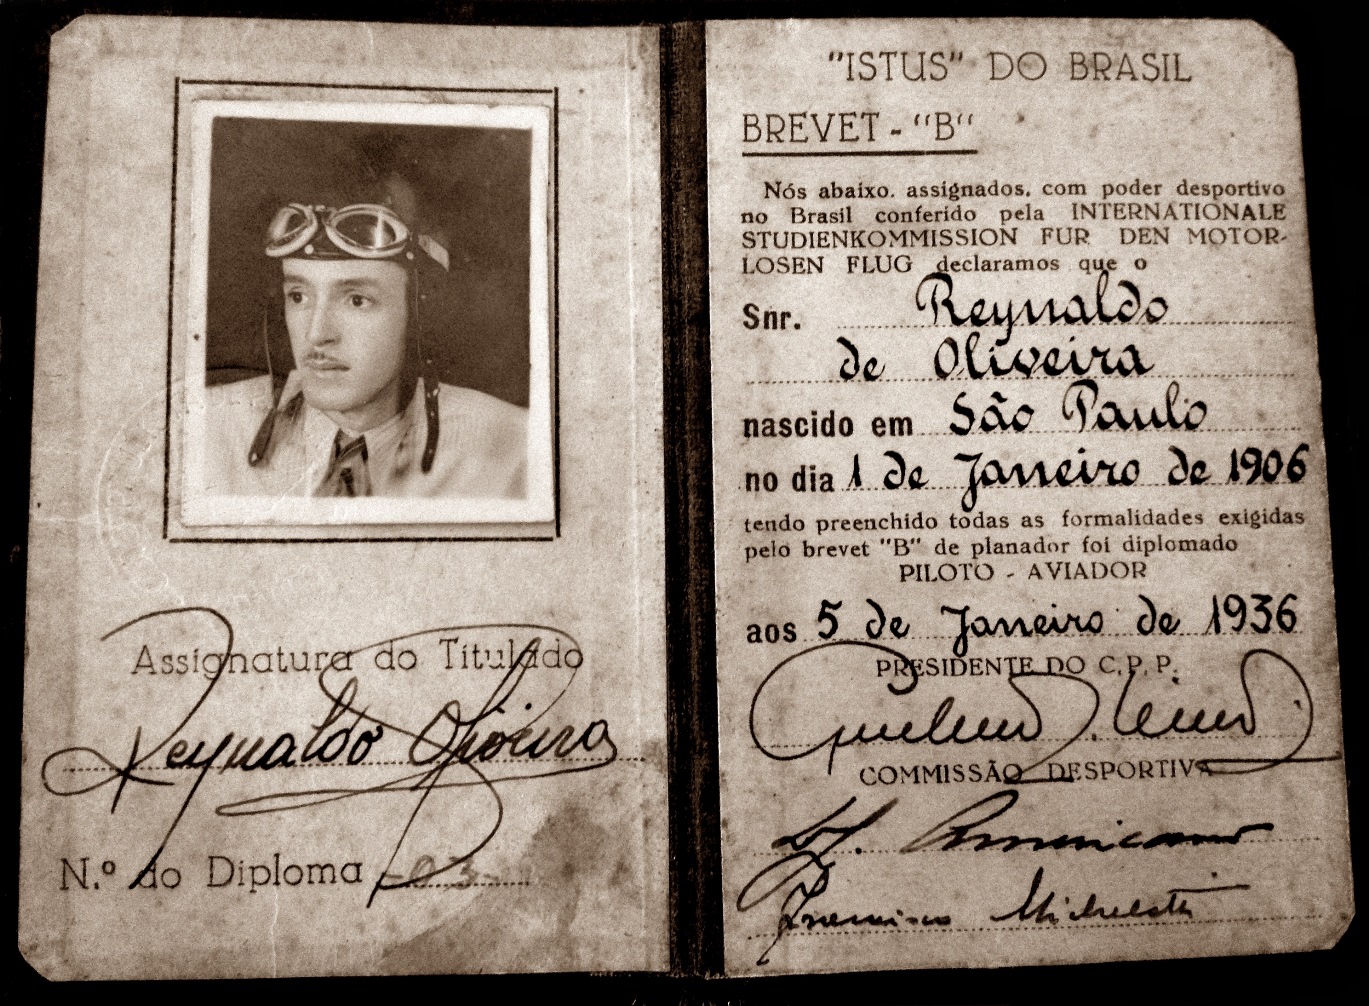 Assignatura do Titulado
Reynaldo Oliveira
N.º do Diploma -03-
"ISTUS" DO BRASIL
BREVET - "B"
Nós abaixo. assignados. com poder desportivo
no Brasil conferido pela INTERNATIONALE
STUDIENKOMMISSION FUR DEN MOTOR-
LOSEN FLUG declaramos que o
Snr. Reynaldo
de Oliveira
nascido em São Paulo
no dia 1 de Janeiro de 1906
tendo preenchido todas as formalidades exigidas
pelo brevet "B" de planador foi diplomado
PILOTO - AVIADOR
aos 5 de Janeiro de 1936
PRESIDENTE DO C.P.P.
COMMISSÃO DESPORTIVA
Americano
Francisco